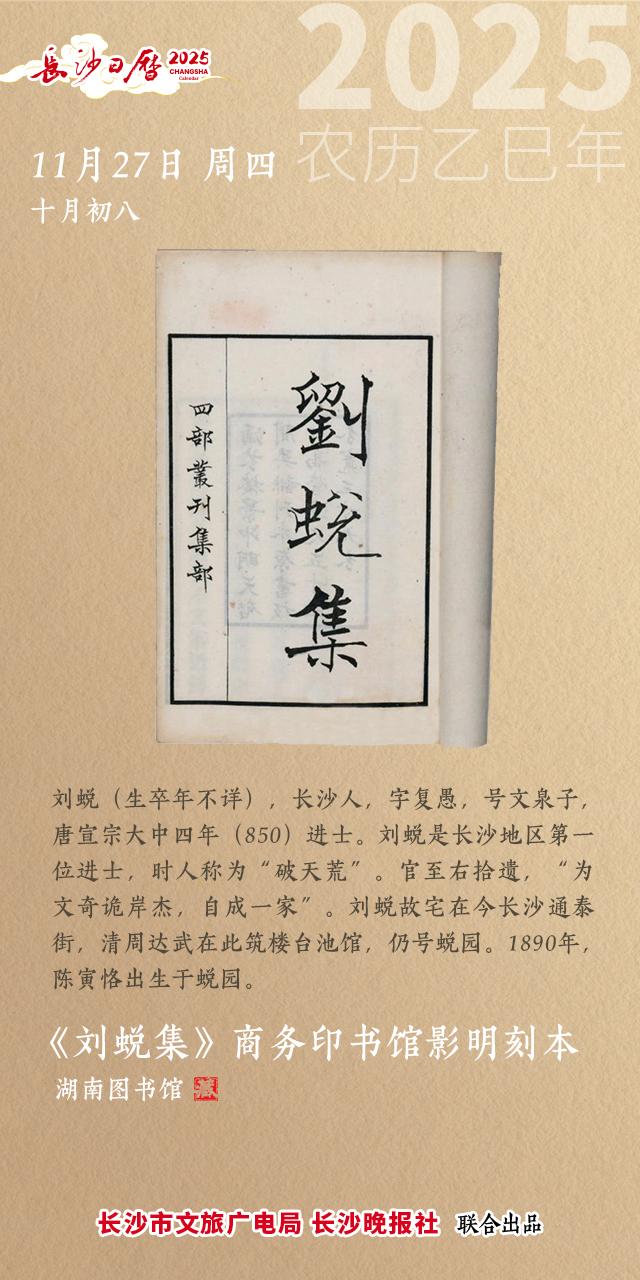 長沙日曆 2025
CHANGSHA
Calendar
2025
农历乙巳年
11月27日 周四
十月初八
劉蛻集
四部叢刊集部
刘蜕（生卒年不详），长沙人，字复愚，号文泉子，
唐宣宗大中四年（850）进士。刘蜕是长沙地区第一
位进士，时人称为“破天荒”。官至右拾遗，“为
文奇诡岸杰，自成一家”。刘蜕故宅在今长沙通泰
街，清周达武在此筑楼台池馆，仍号蜕园。1890年，
陈寅恪出生于蜕园。
《刘蜕集》商务印书馆影明刻本
湖南图书馆 藏
长沙市文旅广电局 长沙晚报社 联合出品